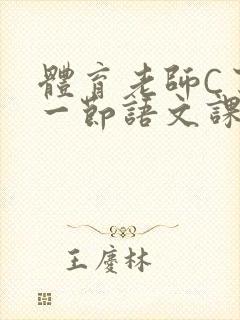 體育老師C
一節語文課
王慶林